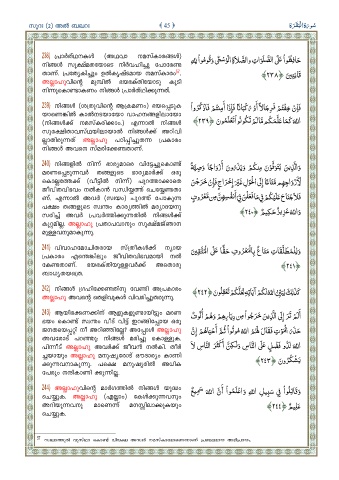 സൂറ (2) അൽ ബഖറ
﴾ 45 ﴿
سُورَةُ الْبَقَرَة
238) പ്രാർത്ഥനകൾ (അഥവാ നമസ്കാരങ്ങൾ)
നിങ്ങൾ സൂക്ഷ്മതയോടെ നിർവഹിച്ചു പോരേണ്ട
താണ്. പ്രത്യേകിച്ചും ഉൽകൃഷ്ടമായ നമസ്കാരം
അല്ലാഹുവിന്റെ മുമ്പിൽ ഭയഭക്തിയോടു കൂടി
നിന്നുകൊണ്ടാകണം നിങ്ങൾ പ്രാർത്ഥിക്കുന്നത്.
حَافِظُوا عَلَى الصَّلَوَاتِ وَالصَّلَاةِ الْوُسْطَىٰ وَقُومُوا لِلَّهِ
قَانِتِينَ ﴿٢٣٨﴾
239) നിങ്ങൾ (ശത്രുവിന്റെ ആക്രമണം) ഭയപ്പെടുക
യാണെങ്കിൽ കാൽനടയായോ വാഹനങ്ങളിലായോ
(നിങ്ങൾക്ക് നമസ്കരിക്കാം.) എന്നാൽ നിങ്ങൾ
സുരക്ഷിതാവസ്ഥയിലായാൽ നിങ്ങൾക്ക് അറിവി
ല്ലാതിരുന്നത് അല്ലാഹു പഠിപ്പിച്ചുതന്ന പ്രകാരം
നിങ്ങൾ അവനെ സ്മരിക്കേണ്ടതാണ്.
فَإِنْ خِفْتُمْ فَرِجَالًا أَوْ رُكْبَانًا فَإِذَا أَمِنْتُمْ فَاذْكُرُوا
اللَّهَ كَمَا عَلَّمَكُمْ مَا لَمْ تَكُونُوا تَعْلَمُونَ ﴿٢٣٩﴾
240) നിങ്ങളിൽ നിന്ന് ഭാര്യമാരെ വിട്ടേച്ചുകൊണ്ട്
മരണപ്പെടുന്നവർ തങ്ങളുടെ ഭാര്യമാർക്ക് ഒരു
കൊല്ലത്തേക്ക് (വീട്ടിൽ നിന്ന്) പുറത്താക്കാതെ
ജീവിതവിഭവം നൽകാൻ വസ്വിയ്യത്ത് ചെയ്യേണ്ടതാ
ണ്. എന്നാൽ അവർ (സ്വയം) പുറത്ത് പോകുന്ന
പക്ഷം തങ്ങളുടെ സ്വന്തം കാര്യത്തിൽ മര്യാദയനു
സരിച്ച് അവർ പ്രവർത്തിക്കുന്നതിൽ നിങ്ങൾക്ക്
കുറ്റമില്ല. അല്ലാഹു പ്രതാപവാനും സൂക്ഷ്മജ്ഞാന
മുള്ളവനുമാകുന്നു.
وَالَّذِينَ يُتَوَفَّوْنَ مِنْكُمْ وَيَذَرُونَ أَزْوَاجًا وَصِيَّةً
لِأَزْوَاجِهِمْ مَتَاعًا إِلَى الْحَوْلِ غَيْرَ إِخْرَاجٍ فَإِنْ خَرَجْنَ
فَلَا جُنَاحَ عَلَيْكُمْ فِي مَا فَعَلْنَ فِي أَنْفُسِهِنَّ مِنْ مَعْرُوفٍ
وَاللَّهُ عَزِيزٌ حَكِيمٌ ﴿٢٤٠﴾
241) വിവാഹമോചിതരായ സ്ത്രീകൾക്ക് ന്യായ
പ്രകാരം എന്തെങ്കിലും ജീവിതവിഭവമായി നൽ
കേണ്ടതാണ്. ഭയഭക്തിയുള്ളവർക്ക് അതൊരു
ബാധ്യതയത്രെ.
وَلِلْمُطَلَّقَاتِ مَتَاعٌ بِالْمَعْرُوفِ حَقًّا عَلَى الْمُتَّقِينَ
﴿٢٤١﴾
242) നിങ്ങൾ ഗ്രഹിക്കേണ്ടതിനു വേണ്ടി അപ്രകാരം
അല്ലാഹു അവന്റെ തെളിവുകൾ വിവരിച്ചുതരുന്നു.
كَذَٰلِكَ يُبَيِّنُ اللَّهُ لَكُمْ آيَاتِهِ لَعَلَّكُمْ تَعْقِلُونَ ﴿٢٤٢﴾
243) ആയിരക്കണക്കിന് ആളുകളുണ്ടായിട്ടും മരണ
ഭയം കൊണ്ട് സ്വന്തം വീട് വിട്ട് ഇറങ്ങിപ്പോയ ഒരു
ജനതയെപ്പറ്റി നീ അറിഞ്ഞില്ലേ? അപ്പോൾ അല്ലാഹു
അവരോട് പറഞ്ഞു: നിങ്ങൾ മരിച്ചു കൊള്ളുക.
പിന്നീട് അല്ലാഹു അവർക്ക് ജീവൻ നൽകി. തീർ
ച്ചയായും അല്ലാഹു മനുഷ്യരോട് ഔദാര്യം കാണി
ക്കുന്നവനാകുന്നു. പക്ഷെ മനുഷ്യരിൽ അധിക
പേരും നന്ദികാണി ക്കുന്നില്ല.
أَلَمْ تَرَ إِلَى الَّذِينَ خَرَجُوا مِنْ دِيَارِهِمْ وَهُمْ أُلُوفٌ
حَذَرَ الْمَوْتِ فَقَالَ لَهُمُ اللَّهُ مُوتُوا ثُمَّ أَحْيَاهُمْ إِنَّ
اللَّهَ لَذُو فَضْلٍ عَلَى النَّاسِ وَلَٰكِنَّ أَكْثَرَ النَّاسِ لَا
يَشْكُرُونَ ﴿٢٤٣﴾
244) അല്ലാഹുവിന്റെ മാർഗത്തിൽ നിങ്ങൾ യുദ്ധം
ചെയ്യുക. അല്ലാഹു (എല്ലാം) കേൾക്കുന്നവനും
അറിയുന്നവനു മാണെന്ന് മനസ്സിലാക്കുകയും
ചെയ്യുക.
وَقَاتِلُوا فِي سَبِيلِ اللَّهِ وَاعْلَمُوا أَنَّ اللَّهَ سَمِيعٌ
عَلِيمٌ ﴿٢٤٤﴾